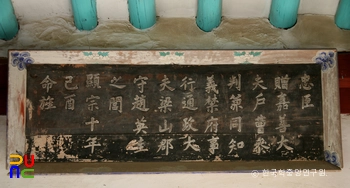 忠臣
贈嘉善大
夫戶曹參
判兼同知
義禁府事
行通政大
夫梁山郡
守趙英圭
之閭
顯宗十年
己酉
命旌
ⓒ 한국학중앙연구원